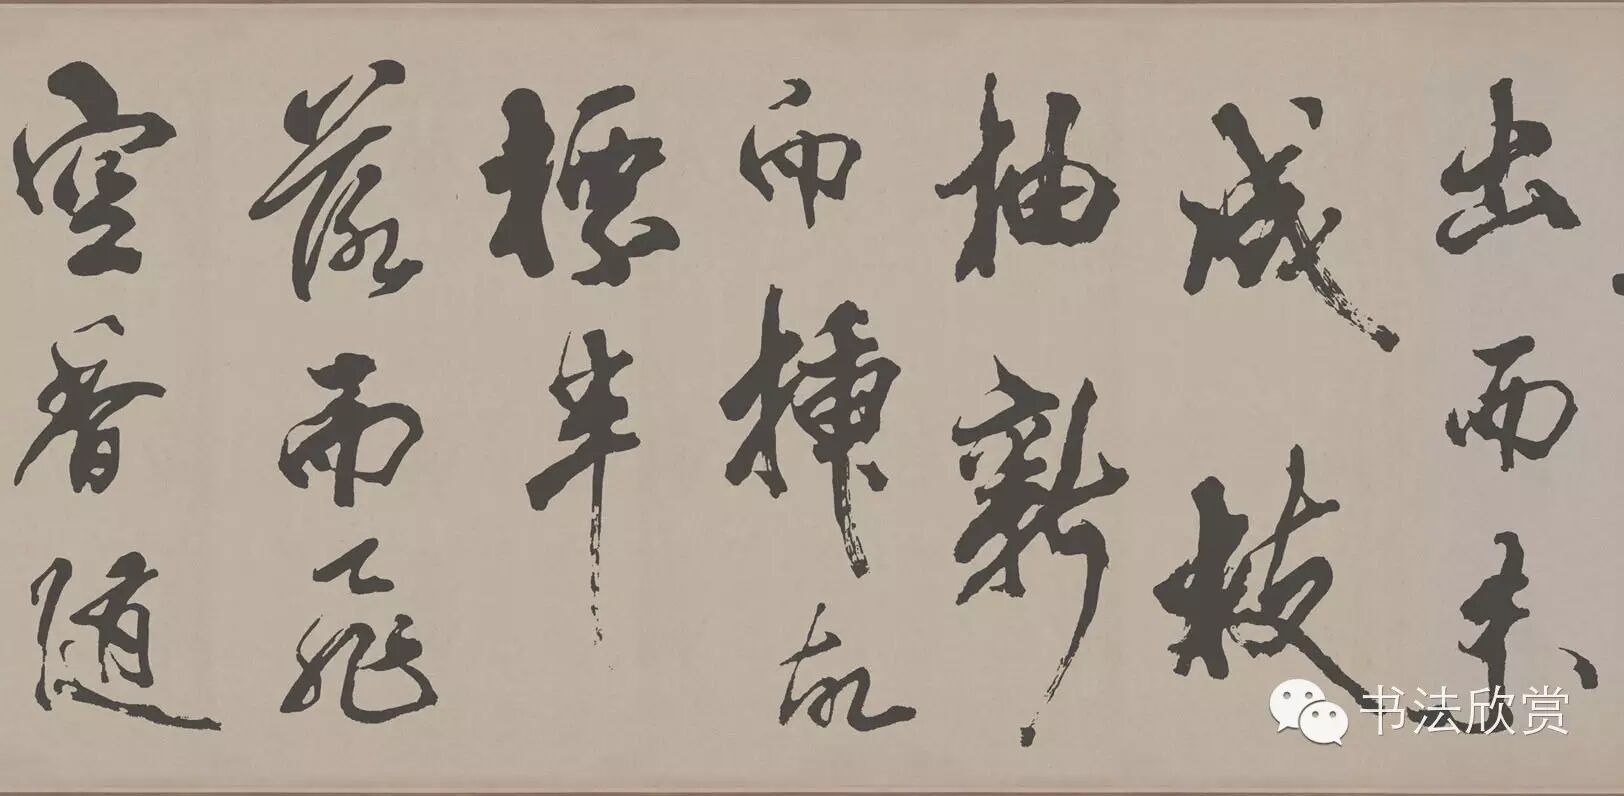 出而未
成枝
抽新
而插故
標半
落而飛
空香隨
书法欣赏